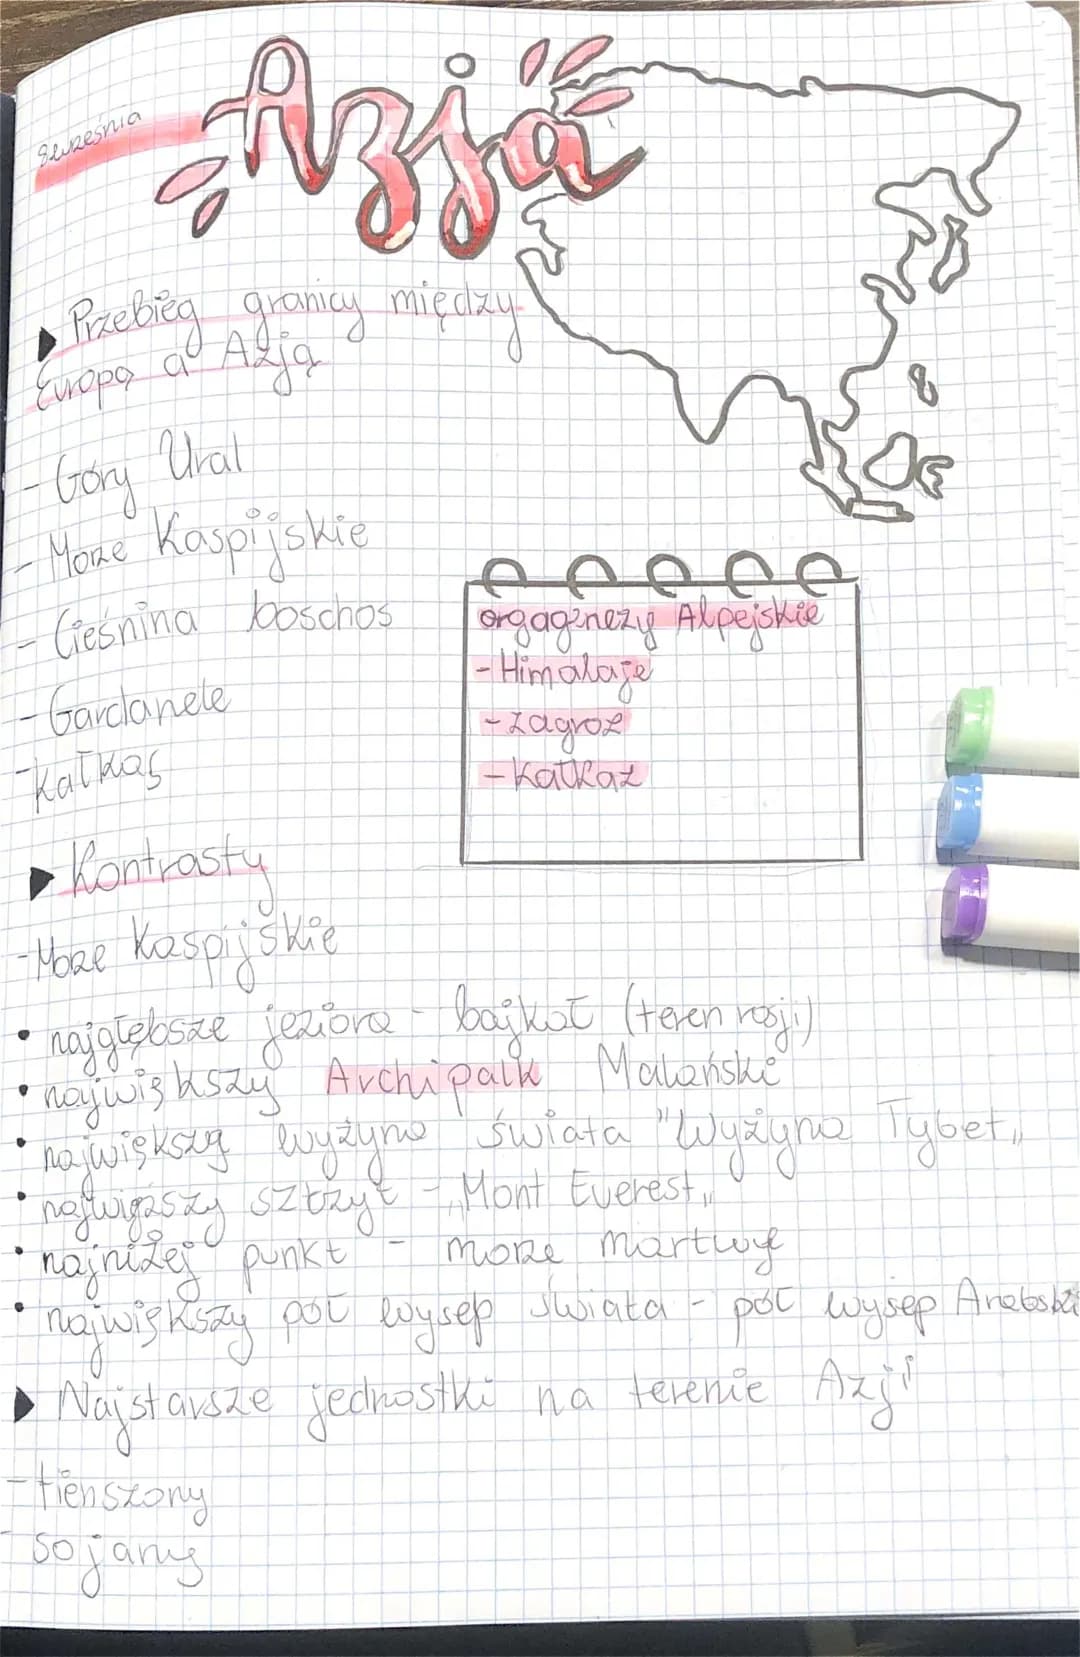 8 września
Azja
Przebieg granicy między
Europą a Azją
- Góry Ural
- Morze Kaspijskie
- Cieśnina boschos
- Gardanele
- Kałkas
orgaginezy Alpejskie
- Himalaje
- zagroz
- Kałkaz
Kontrasty
- Morze Kaspijskie
• najgłębsze jeziora - bajkał (teren rosji)
• największy Archipalk Malański
• największą wyżyna świata "Wyżyna Tybet„
• najwięszy sztzyt - „Mont Everest„
• najniżej punkt - morze martwye
• największy pół wysep świata - pół wysep Arabski
Najstarsze jednostki na terenie Azji
- tienszony
- sojany